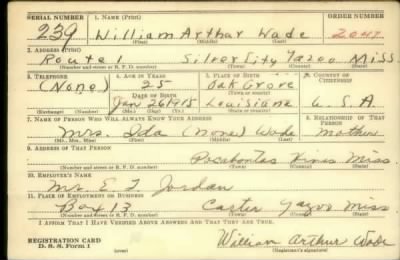 SERIAL NUMBER 1. NAME (Print) ORDER NUMBER
239 William Arthur Wade 2047
(First) (Middle) (Last)
2. ADDRESS (Print)
Route 1 Silver City Yazoo Miss
(Number and street or R. F. D. number) (Town) (County) (State)
3. TELEPHONE 4. AGE IN YEARS 5. PLACE OF BIRTH 6. COUNTRY OF CITIZENSHIP
(None) 25 Oak Grove
DATE OF BIRTH (Town or county)
Jan 26 1915 Louisiana U.S.A
(Exchange) (Number) (Mo.) (Day) (Yr.) (State or country)
7. NAME OF PERSON WHO WILL ALWAYS KNOW YOUR ADDRESS 8. RELATIONSHIP OF THAT PERSON
Mrs. Ida (None) Wade Mother
(Mr., Mrs., Miss) (First) (Middle) (Last)
9. ADDRESS OF THAT PERSON
Pocahontas Hinds Miss.
(Number and street or R. F. D. number) (Town) (County) (State)
10. EMPLOYER'S NAME
Mr. E Jordan
11. PLACE OF EMPLOYMENT OR BUSINESS
Box 13 Carter Yazoo Miss
(Number and street or R. F. D. number) (Town) (County) (State)
I AFFIRM THAT I HAVE VERIFIED ABOVE ANSWERS AND THAT THEY ARE TRUE.
REGISTRATION CARD
D. S. S. Form 1 (over) William Arthur Wade
(Registrant's signature)